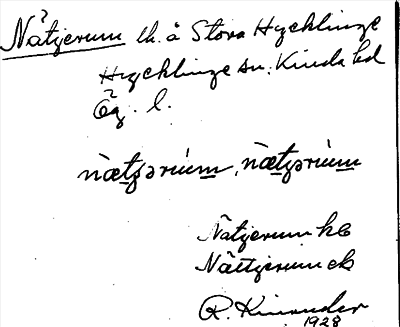 Nåtjerum lh. å Stora Hycklinge
Hycklinge sn. Kinda hd
Ög. l.
nætʒərium, nætʒərium
Natjerum hb
Nättjerum ek
R. Kinander
1928